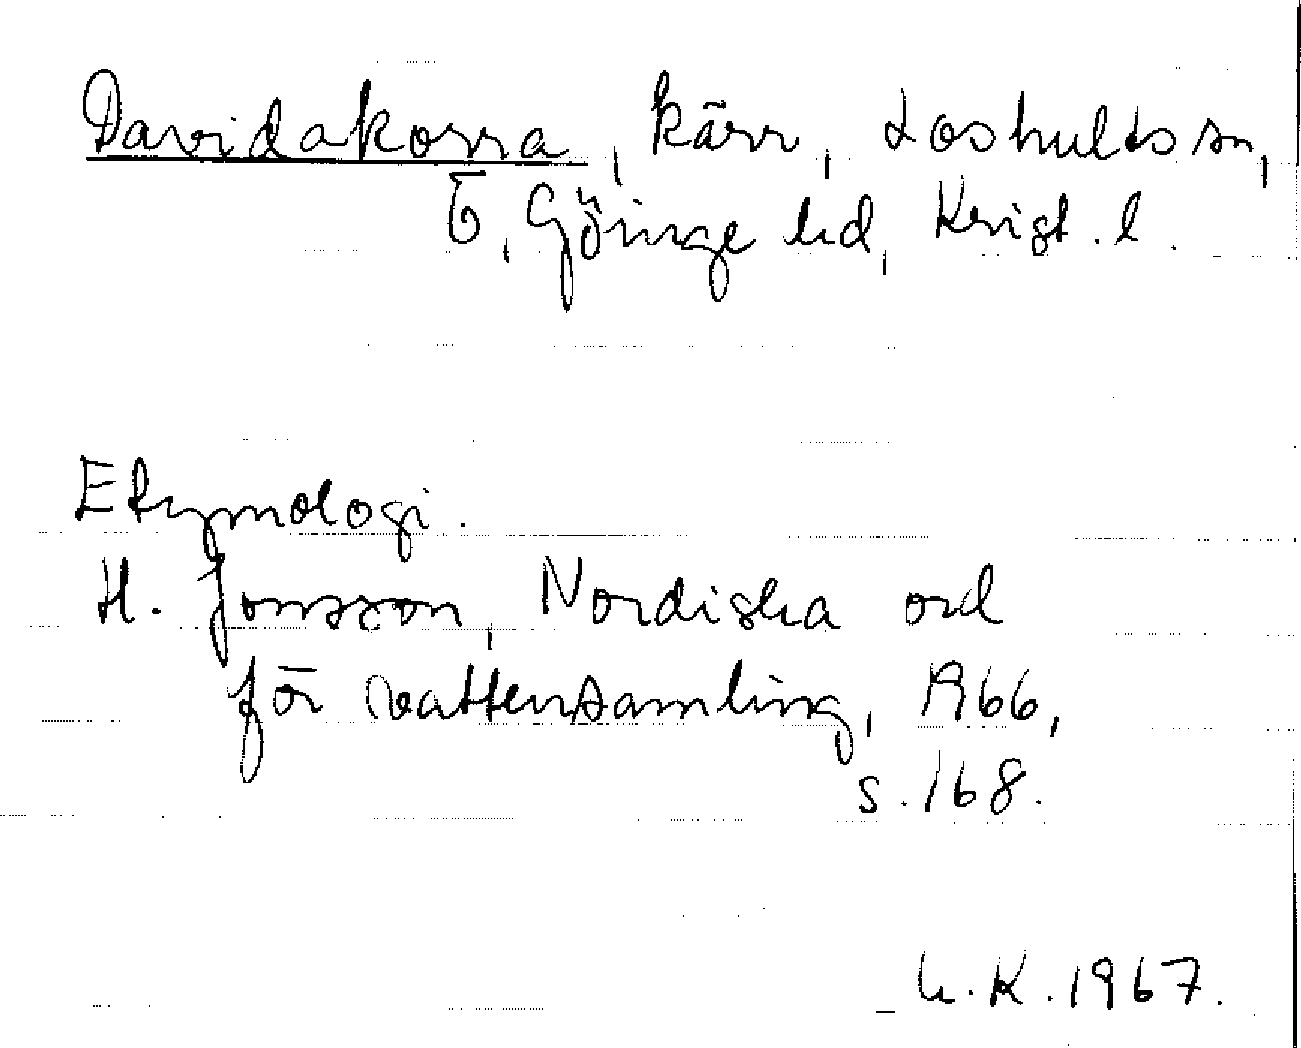 Davidakorra, kärr, Loshults sn,
Ö. Göinge hd, Krist. l.
Etymologi.
H. Jonsson, Nordiska ord
för vattensamling, 1966,
s. 168.
U.K. 1967.